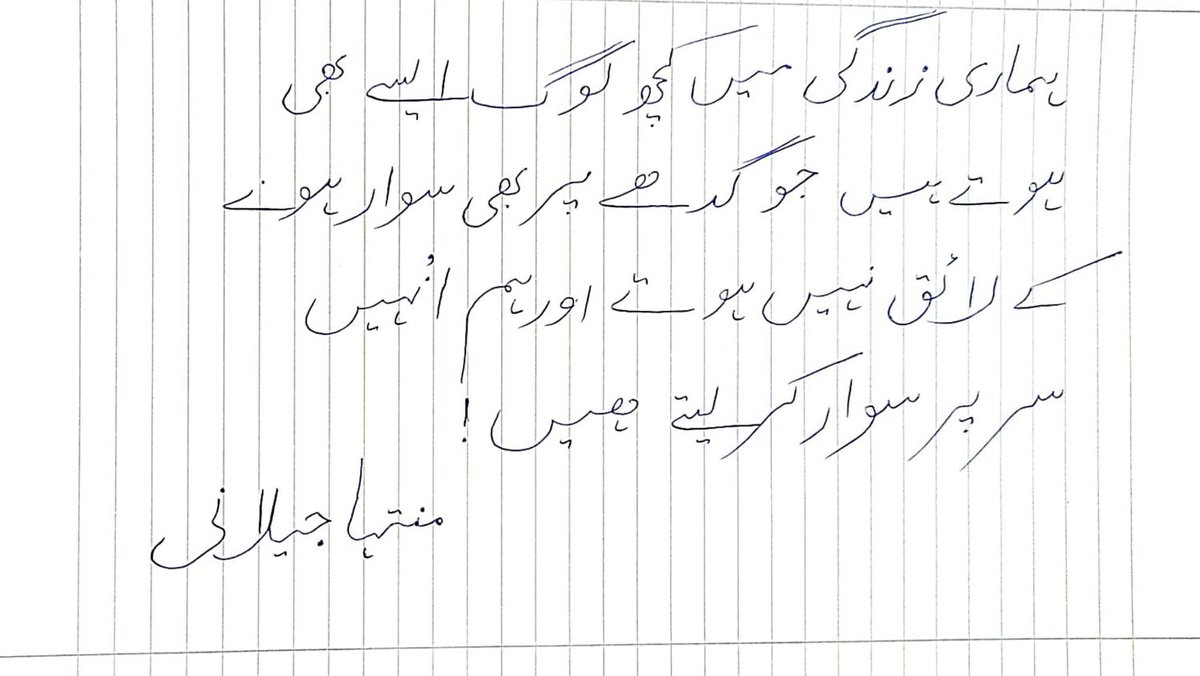 ہماری زندگی میں کچھ لوگ ایسے بھی
ہوتے ہیں جو گدھے پر بھی سوار ہونے
کے لائق نہیں ہوتے اور ہم اُنہیں
سر پر سوار کر لیتے ھیں!
منتہا جیلانی